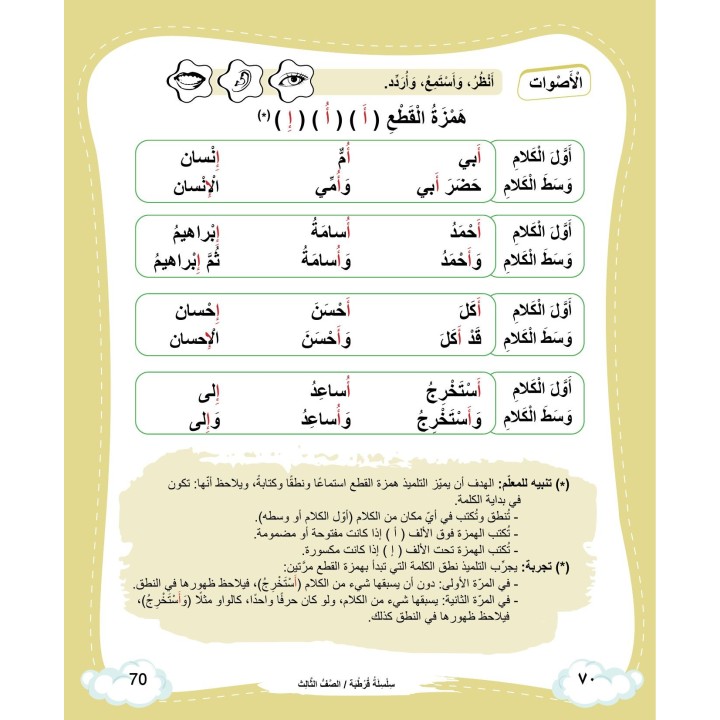 الْأَصْوات
أَنْظُرُ، وَأَسْتَمِعُ، وَأُرَدِّد.
هَمْزَةُ الْقَطْعِ ( أَ ) ( أُ ) ( إِ ) (*)
أَوَّلَ الْكَلامِ أَبي أُمٌّ إِنْسان
وَسَطَ الْكَلامِ حَضَرَ أَبي وَأُمّي الْإِنْسان
أَوَّلَ الْكَلامِ أَحْمَدُ أُسامَةُ إِبْراهيمُ
وَسَطَ الْكَلامِ وَأَحْمَدُ وَأُسامَةُ ثُمَّ إِبْراهيمُ
أَوَّلَ الْكَلامِ أَكَلَ أَحْسَنَ إِحْسان
وَسَطَ الْكَلامِ قَدْ أَكَلَ وَأَحْسَنَ الْإِحسان
أَوَّلَ الْكَلامِ أَسْتَخْرِجُ أُساعِدُ إِلى
وَسَطَ الْكَلامِ وَأَسْتَخْرِجُ وَأُساعِدُ وَإِلى
(*) تنبيه للمعلّم: الهدف أن يميّز التلميذ همزة القطع استماعًا ونطقًا وكتابةً، ويلاحظ أنّها: تكون
في بداية الكلمة.
- تُنطق وتُكتب في أيّ مكان من الكلام (أوّل الكلام أو وسطه).
- تُكتب الهمزة فوق الألف ( أ ) إذا كانت مفتوحة أو مضمومة.
- تُكتب الهمزة تحت الألف ( إ ) إذا كانت مكسورة.
(*) تجربة: يجرّب التلميذ نطق الكلمة التي تبدأ بهمزة القطع مرَّتين:
- في المرّة الأولى: دون أن يسبقها شيء من الكلام (أَسْتَخْرِجُ)، فيلاحظ ظهورها في النطق.
- في المرّة الثانية: يسبقها شيء من الكلام، ولو كان حرفًا واحدًا، كالواو مثلًا (وَأَسْتَخْرِجُ)،
فيلاحظ ظهورها في النطق كذلك.
٧٠
سِلْسِلَةُ قُرْطُبَة / الصَّفُّ الثّالِث
70